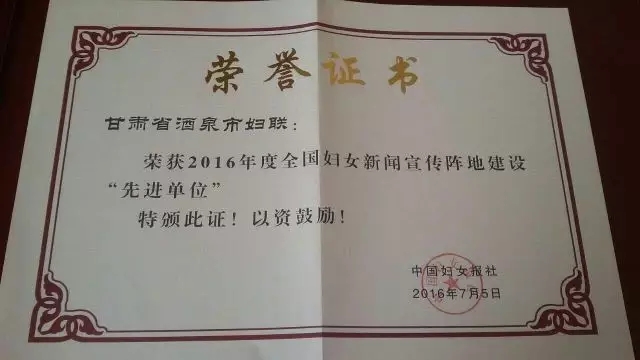 荣誉证书
甘肃省酒泉市妇联：
荣获2016年度全国妇女新闻宣传阵地建设
“先进单位”
特颁此证！以资鼓励！
中国妇女报社
2016年7月5日